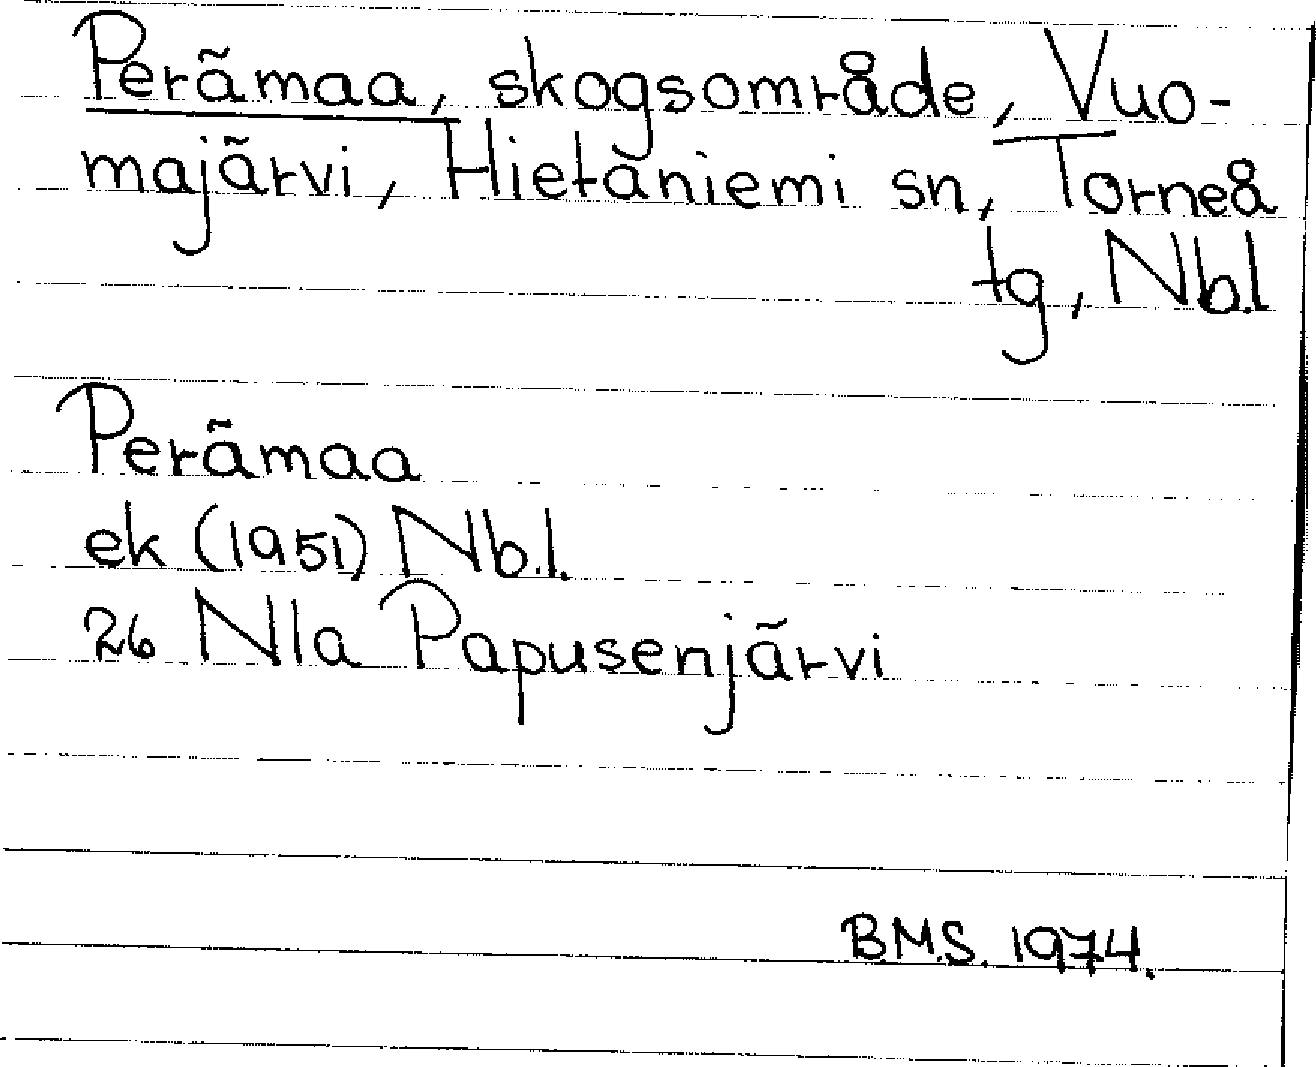 Perämaa, skogsområde, Vuo-
majärvi, Hietaniemi sn, Torneå
tg, Nb.l
Perämaa
ek (1951) Nb.l.
26 Nla Papusenjärvi
B.M.S. 1974.